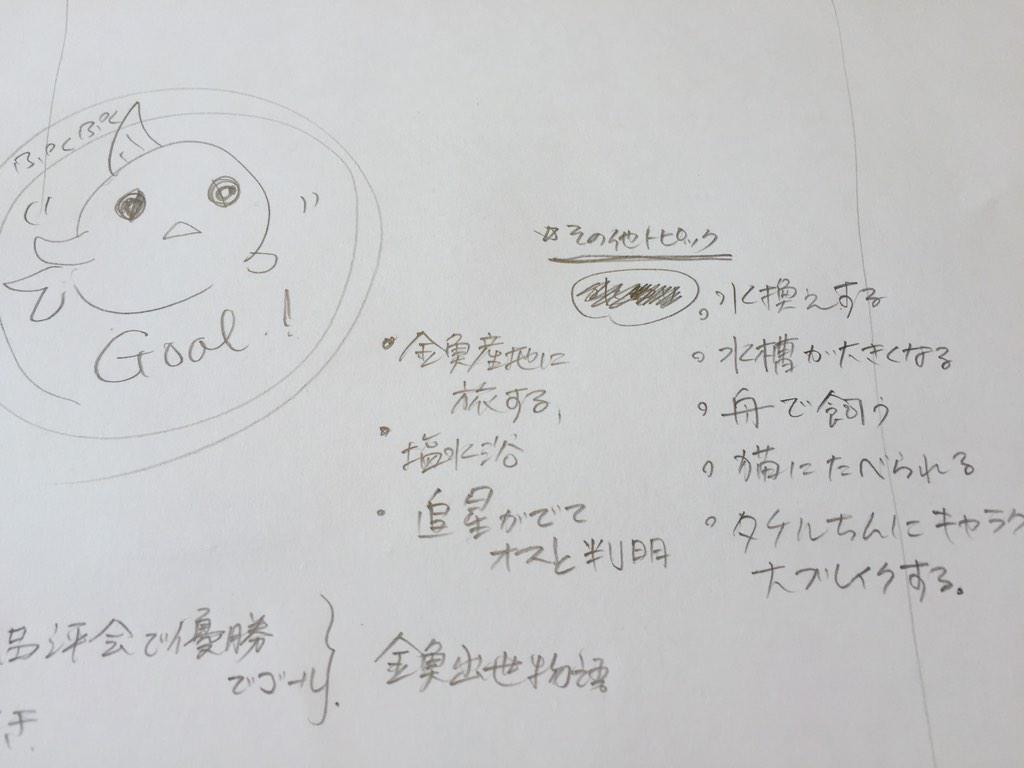 Goal!
☆その他トピック
・金魚産地に
旅する、
・塩水浴
・追星がでて
オスと判明
。水換えする
。水槽が大きくなる
。舟で飼う
。猫にたべられる
。タケルちんにキャラク
大ブレイクする。
品評会で優勝
でゴール。
金魚出世物語